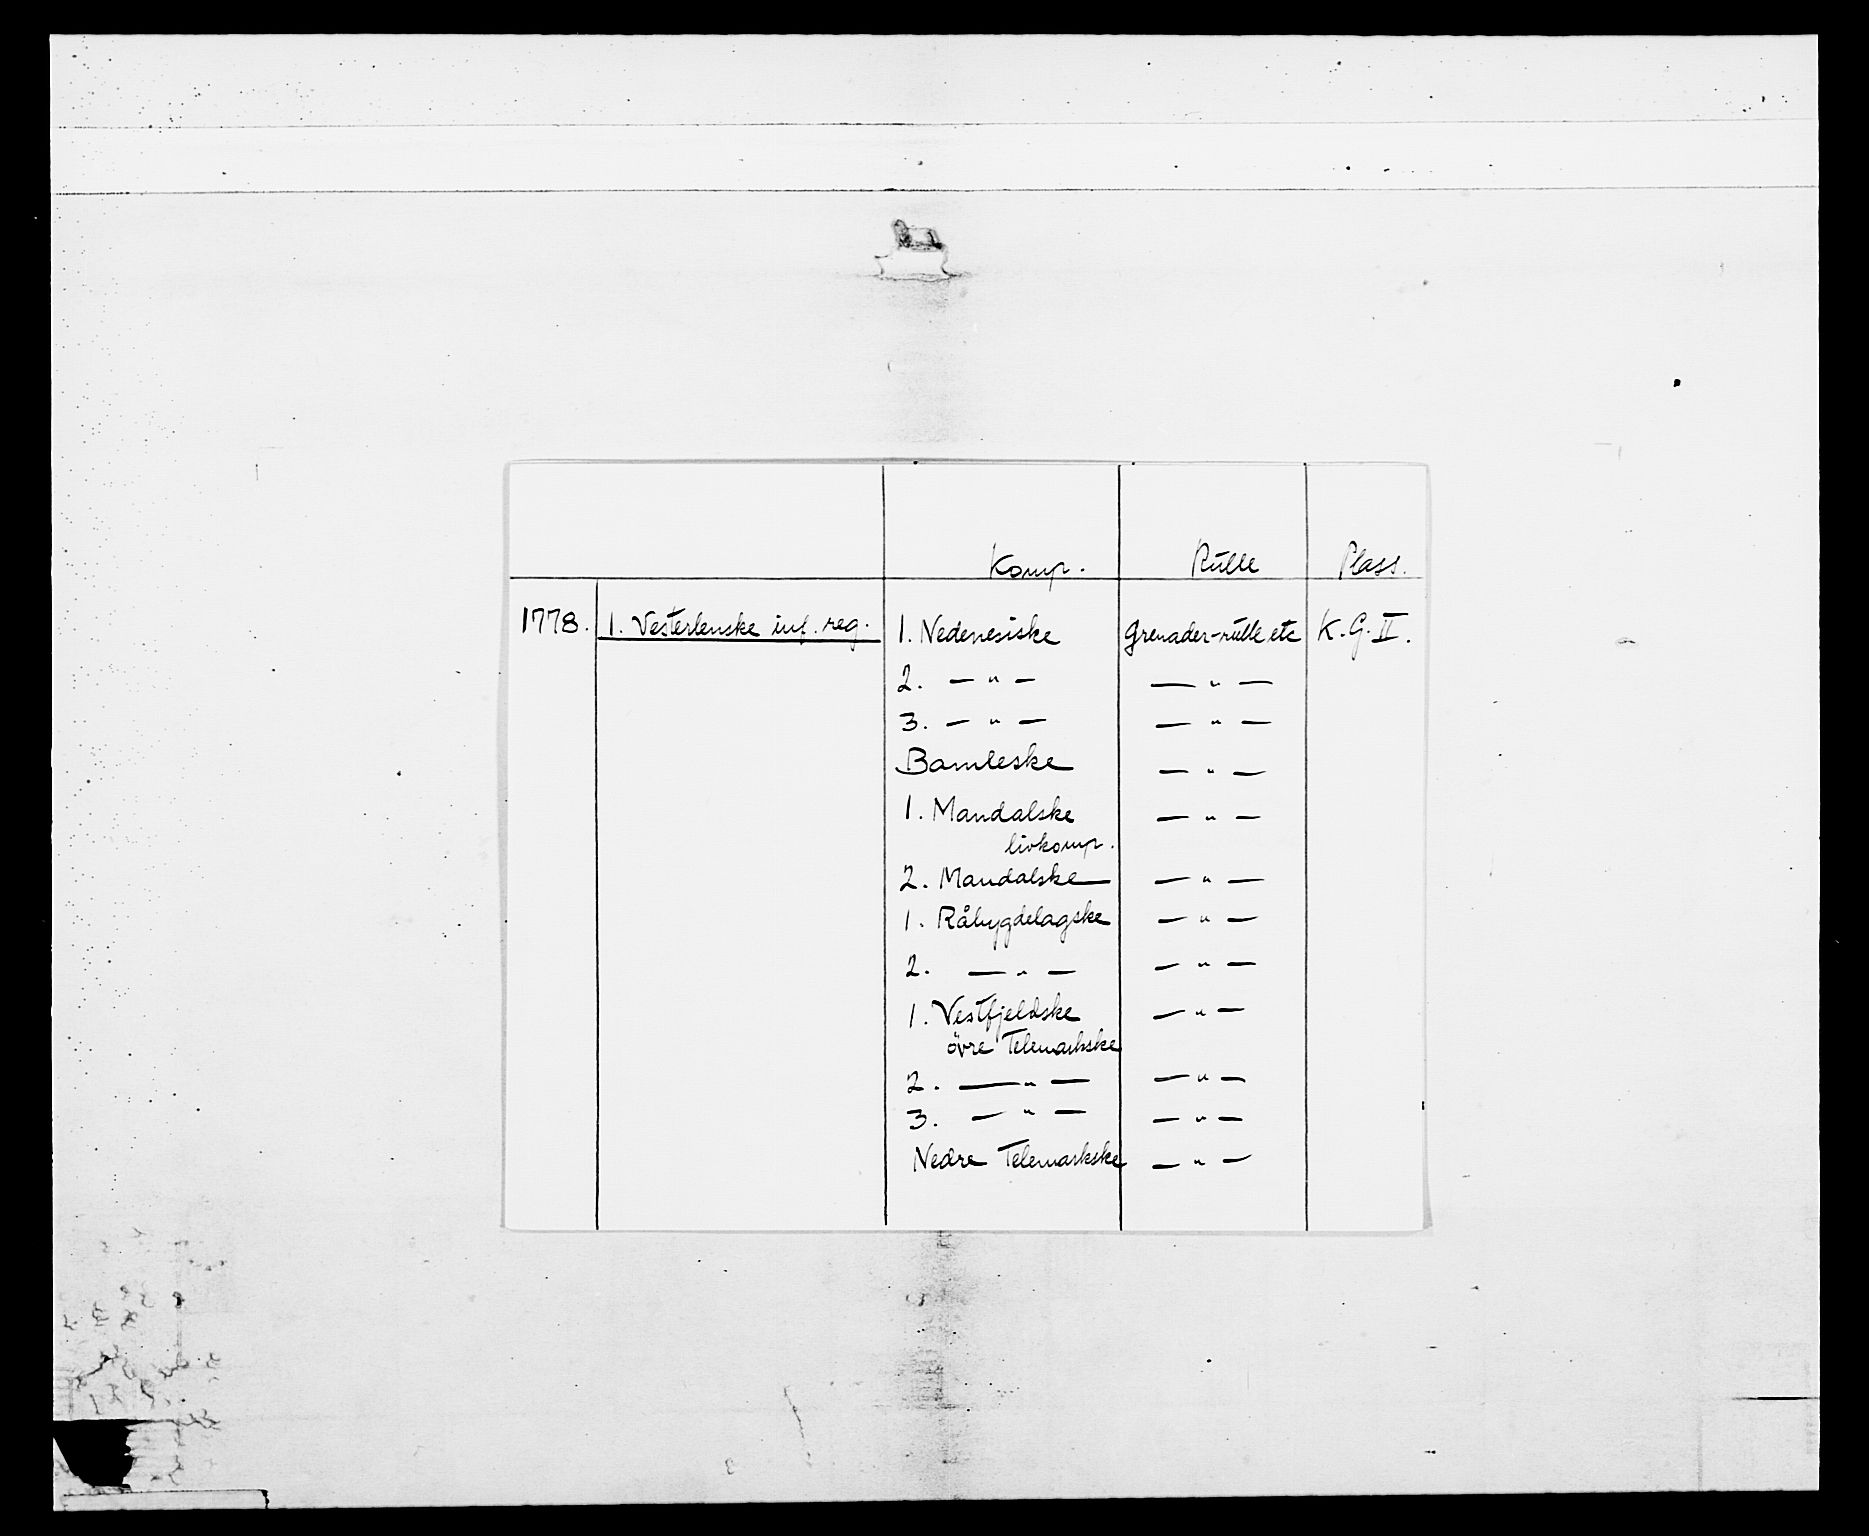 Komp. Rulle Plass.
1778. 1. Vesterlenske inf. reg. 1. Nedenesiske Grenader-rulle etc K. G. II.
2. — " — — " —
3. — " — — " —
Bamleske — " —
1. Mandalske — " —
livkomp.
2. Mandalske — " —
1. Råbygdelagske — " —
2. — " — — " —
1. Vestfjeldske — " —
övre Telemarkske
2. — " — — " —
3. — " — — " —
Nedre Telemarkske — " —